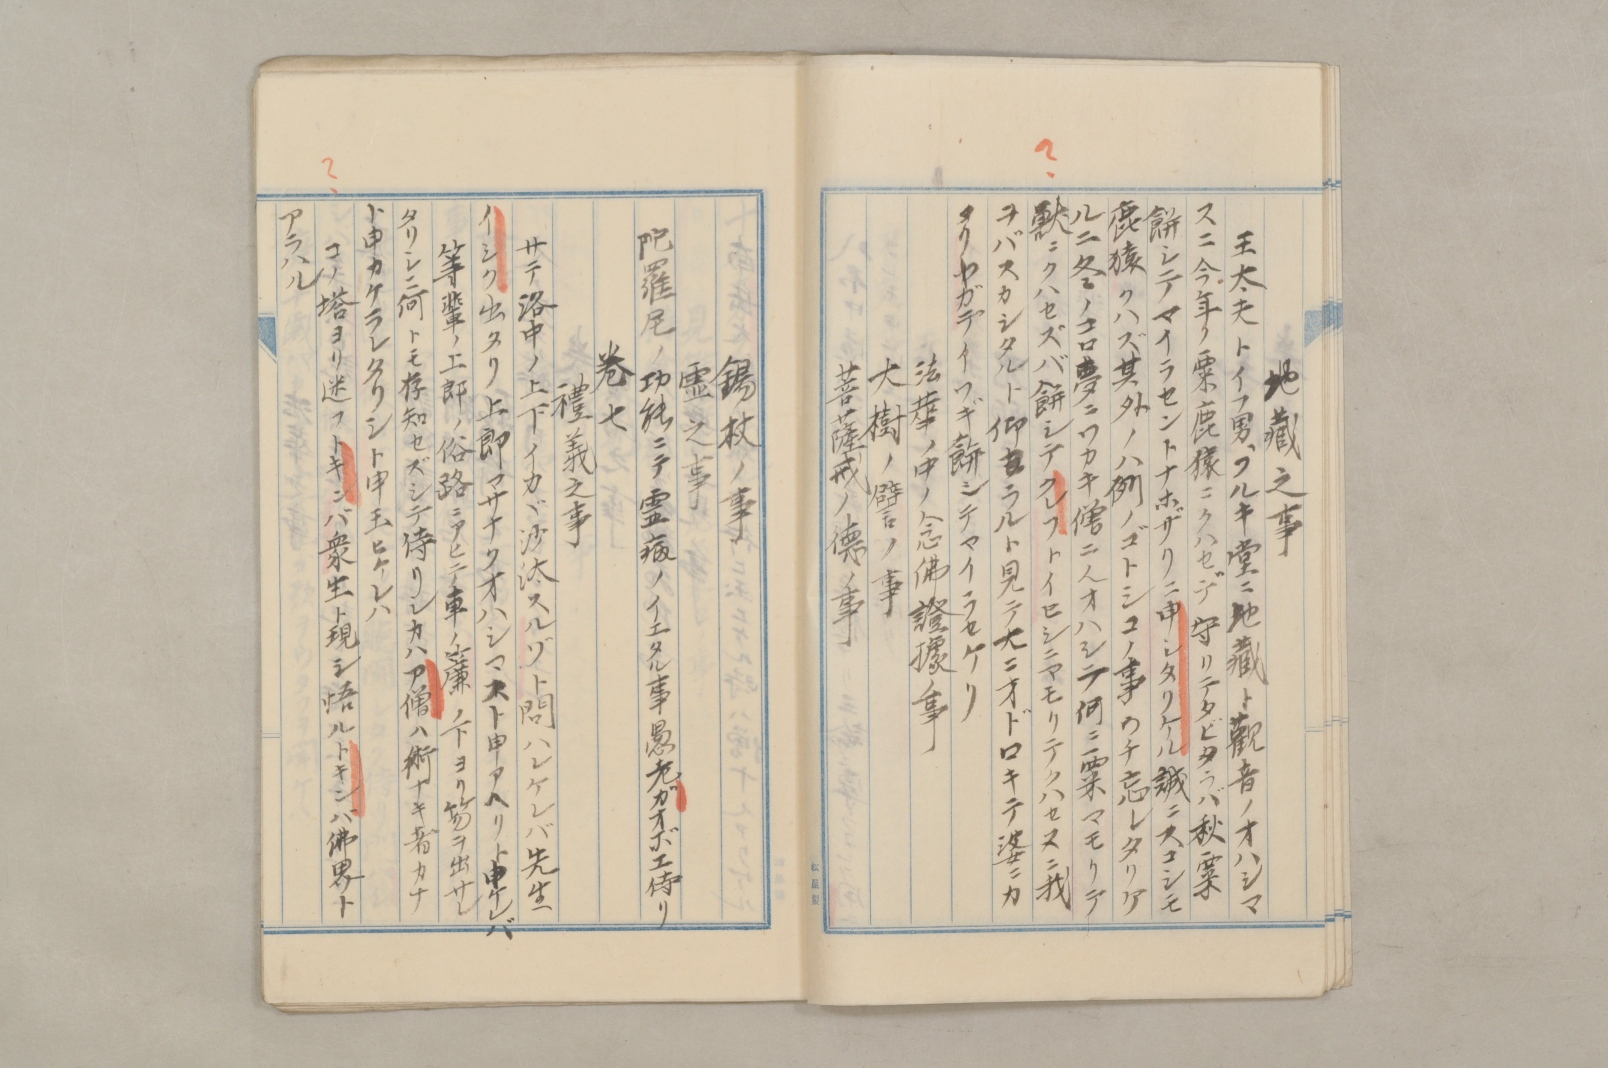 地藏之事
王太夫トイフ男、フルキ堂ニ地藏ト觀音ノオハシマ
スニ今年ノ粟鹿猿ニクハセデ守リテタビタラバ秋粟
餅シテマイラセントナホザリニ申シタリケル誠ニスコシモ
鹿猿クハズ其外ノハ例ノゴトシコノ事ウチ忘レタリケ
ルニ冬ノコロ夢ニワカキ僧二人オハシテ何ニ粟マモリテ
獸ニクハセズバ餅シテクレフトイヒシニマモリテクハセヌニ我
ヲバスカシタルト仰セラルト見テ大ニオドロキテ婆ニカ
タリヤガテイソギ餅シテマイラセケリ
法華ノ中ノ念佛證據ノ事
大樹ノ譬ノ事
菩薩戒ノ德ノ事
錫杖ノ事
霊之事
陀羅尼ノ功能ニテ霊病ノイエタル事愚老ガオボエ侍リ
卷七
禮義之事
サテ洛中ノ上下イカヾ沙汰スルゾト問ハレケレバ先生
イシク出タリ上郎マサナクオハシマストト申アヘリト申ケレバ
等輩ノ上郎ノ俗路ニアヒテ車ノ簾ノ下ヨリ笏ヲ出サレ
タリシニ何トモ存知セズシテ侍リシカハア僧ハ術ナキ者カナ
ト申カケラレタリシト申玉ヒケレハ
コノ塔ヨリ迷フトキンバ衆生ト現シ悟ルトキンバ佛界ト
アラハル